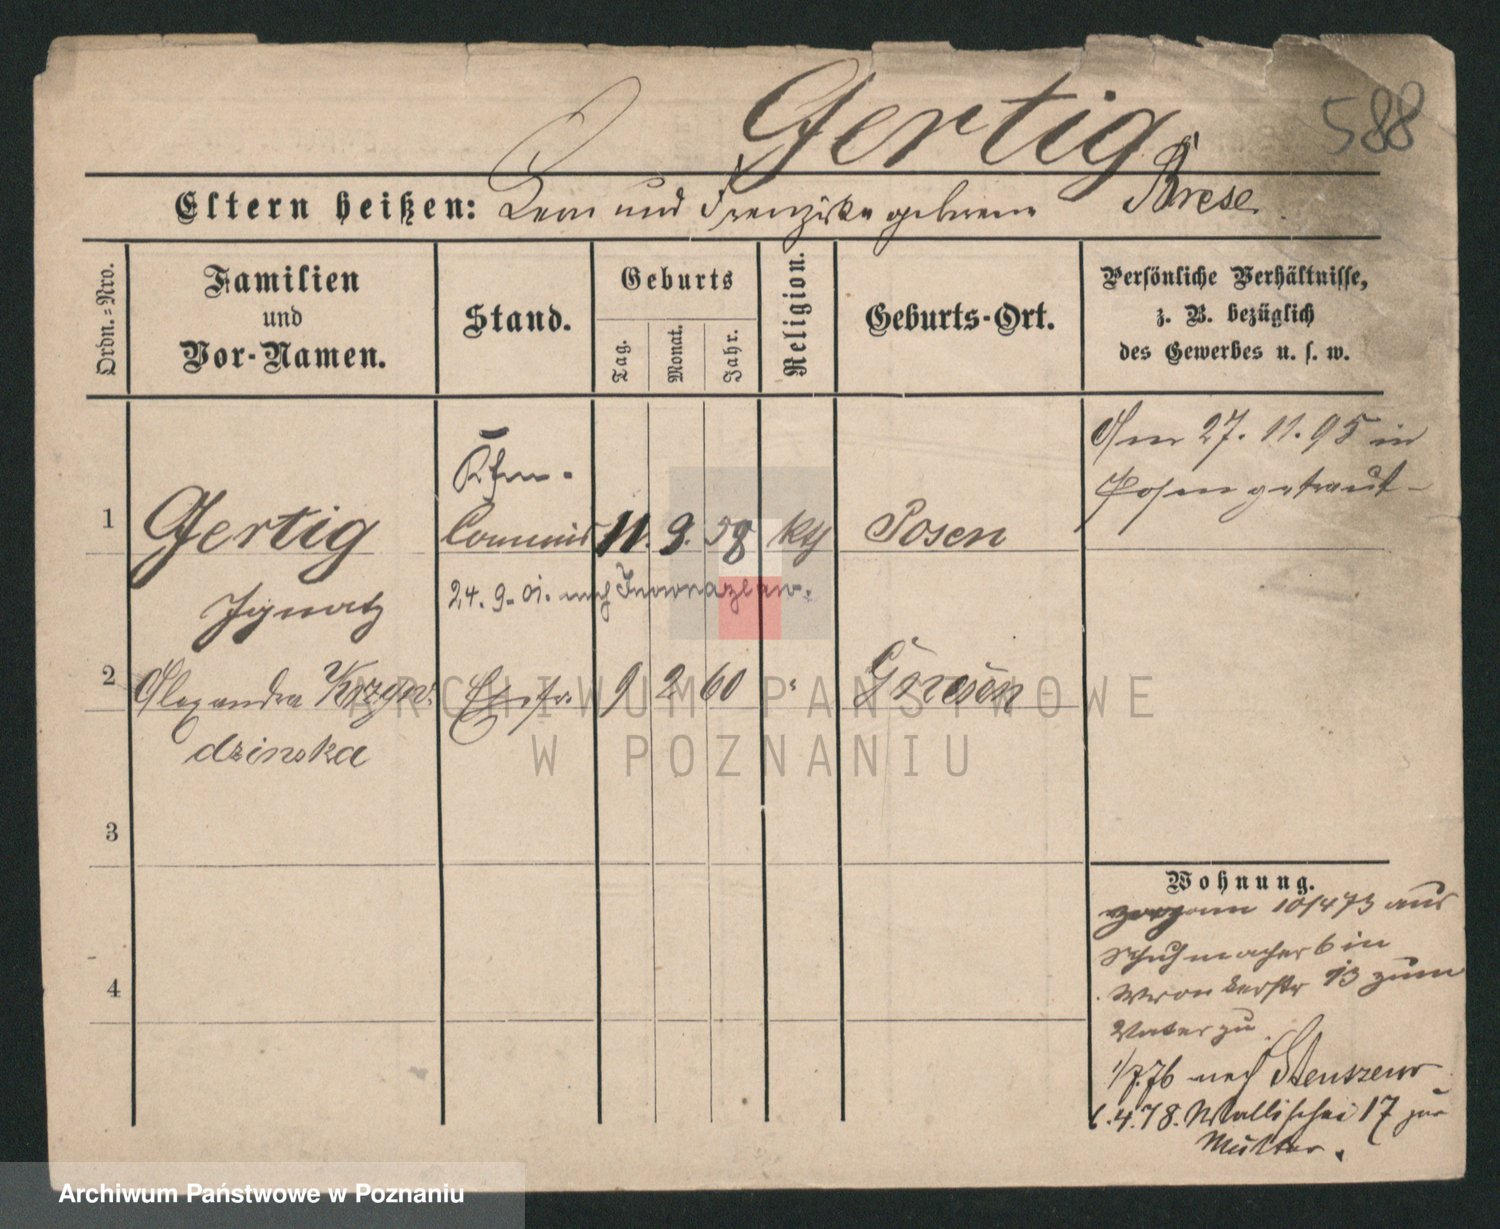 Gertig
588
Eltern heißen: Leon und Franziska geborene Brese.
Ordn.=Nro.
Familien
und
Vor-Namen.
Stand.
Geburts
Tag. Monat. Jahr.
Religion.
Geburts-Ort.
Persönliche Verhältnisse,
z. B. bezüglich
des Gewerbes u. s. w.
Am 27. 11. 95 in
Posen getraut
Kfm.
1 Gertig Commis 11. 9. 58 kth Posen
Ignatz
24. 9. 01. nach Inowrazlaw.
2 Alexandra Krzyw. Ehefr. 9 2 60 " Gnesen
dzinska
3
4
Wohnung.
10/4 73 aus
Schuhmacher 6 in
Wronkerstr 13 zum
Vater zu.
1/7.76 nach Stenszewo
6.4.78. Wallischei 17 zur
Mutter.
ARCHIWUM PAŃSTWOWE
W POZNANIU
Archiwum Państwowe w Poznaniu